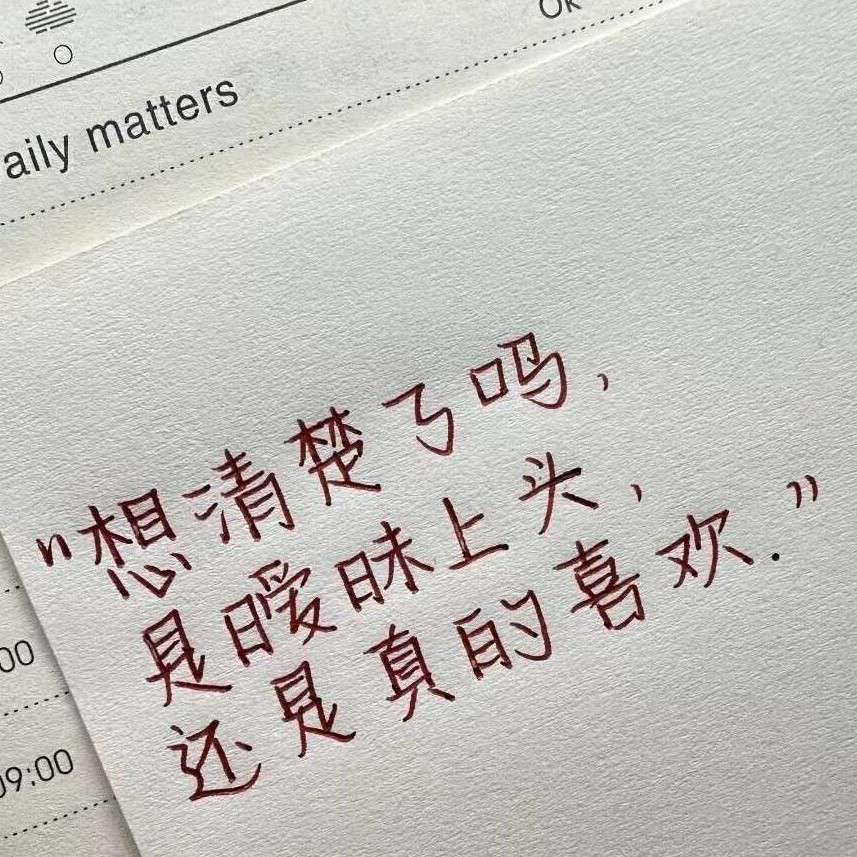 OK
aily matters
"想清楚了吗,
是暧昧上头,
还是真的喜欢."
00
09:00